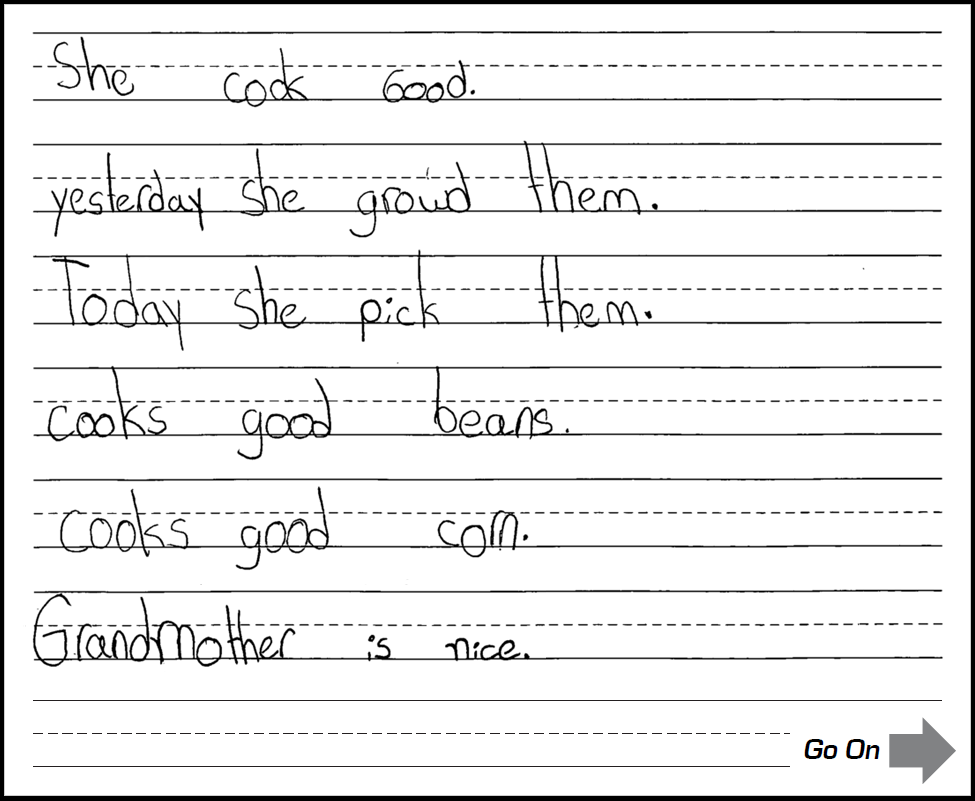 She cook Good.
yesterday she growd them.
Today she pick them.
cooks good beans.
cooks good corn.
GrandMother is nice.
Go On